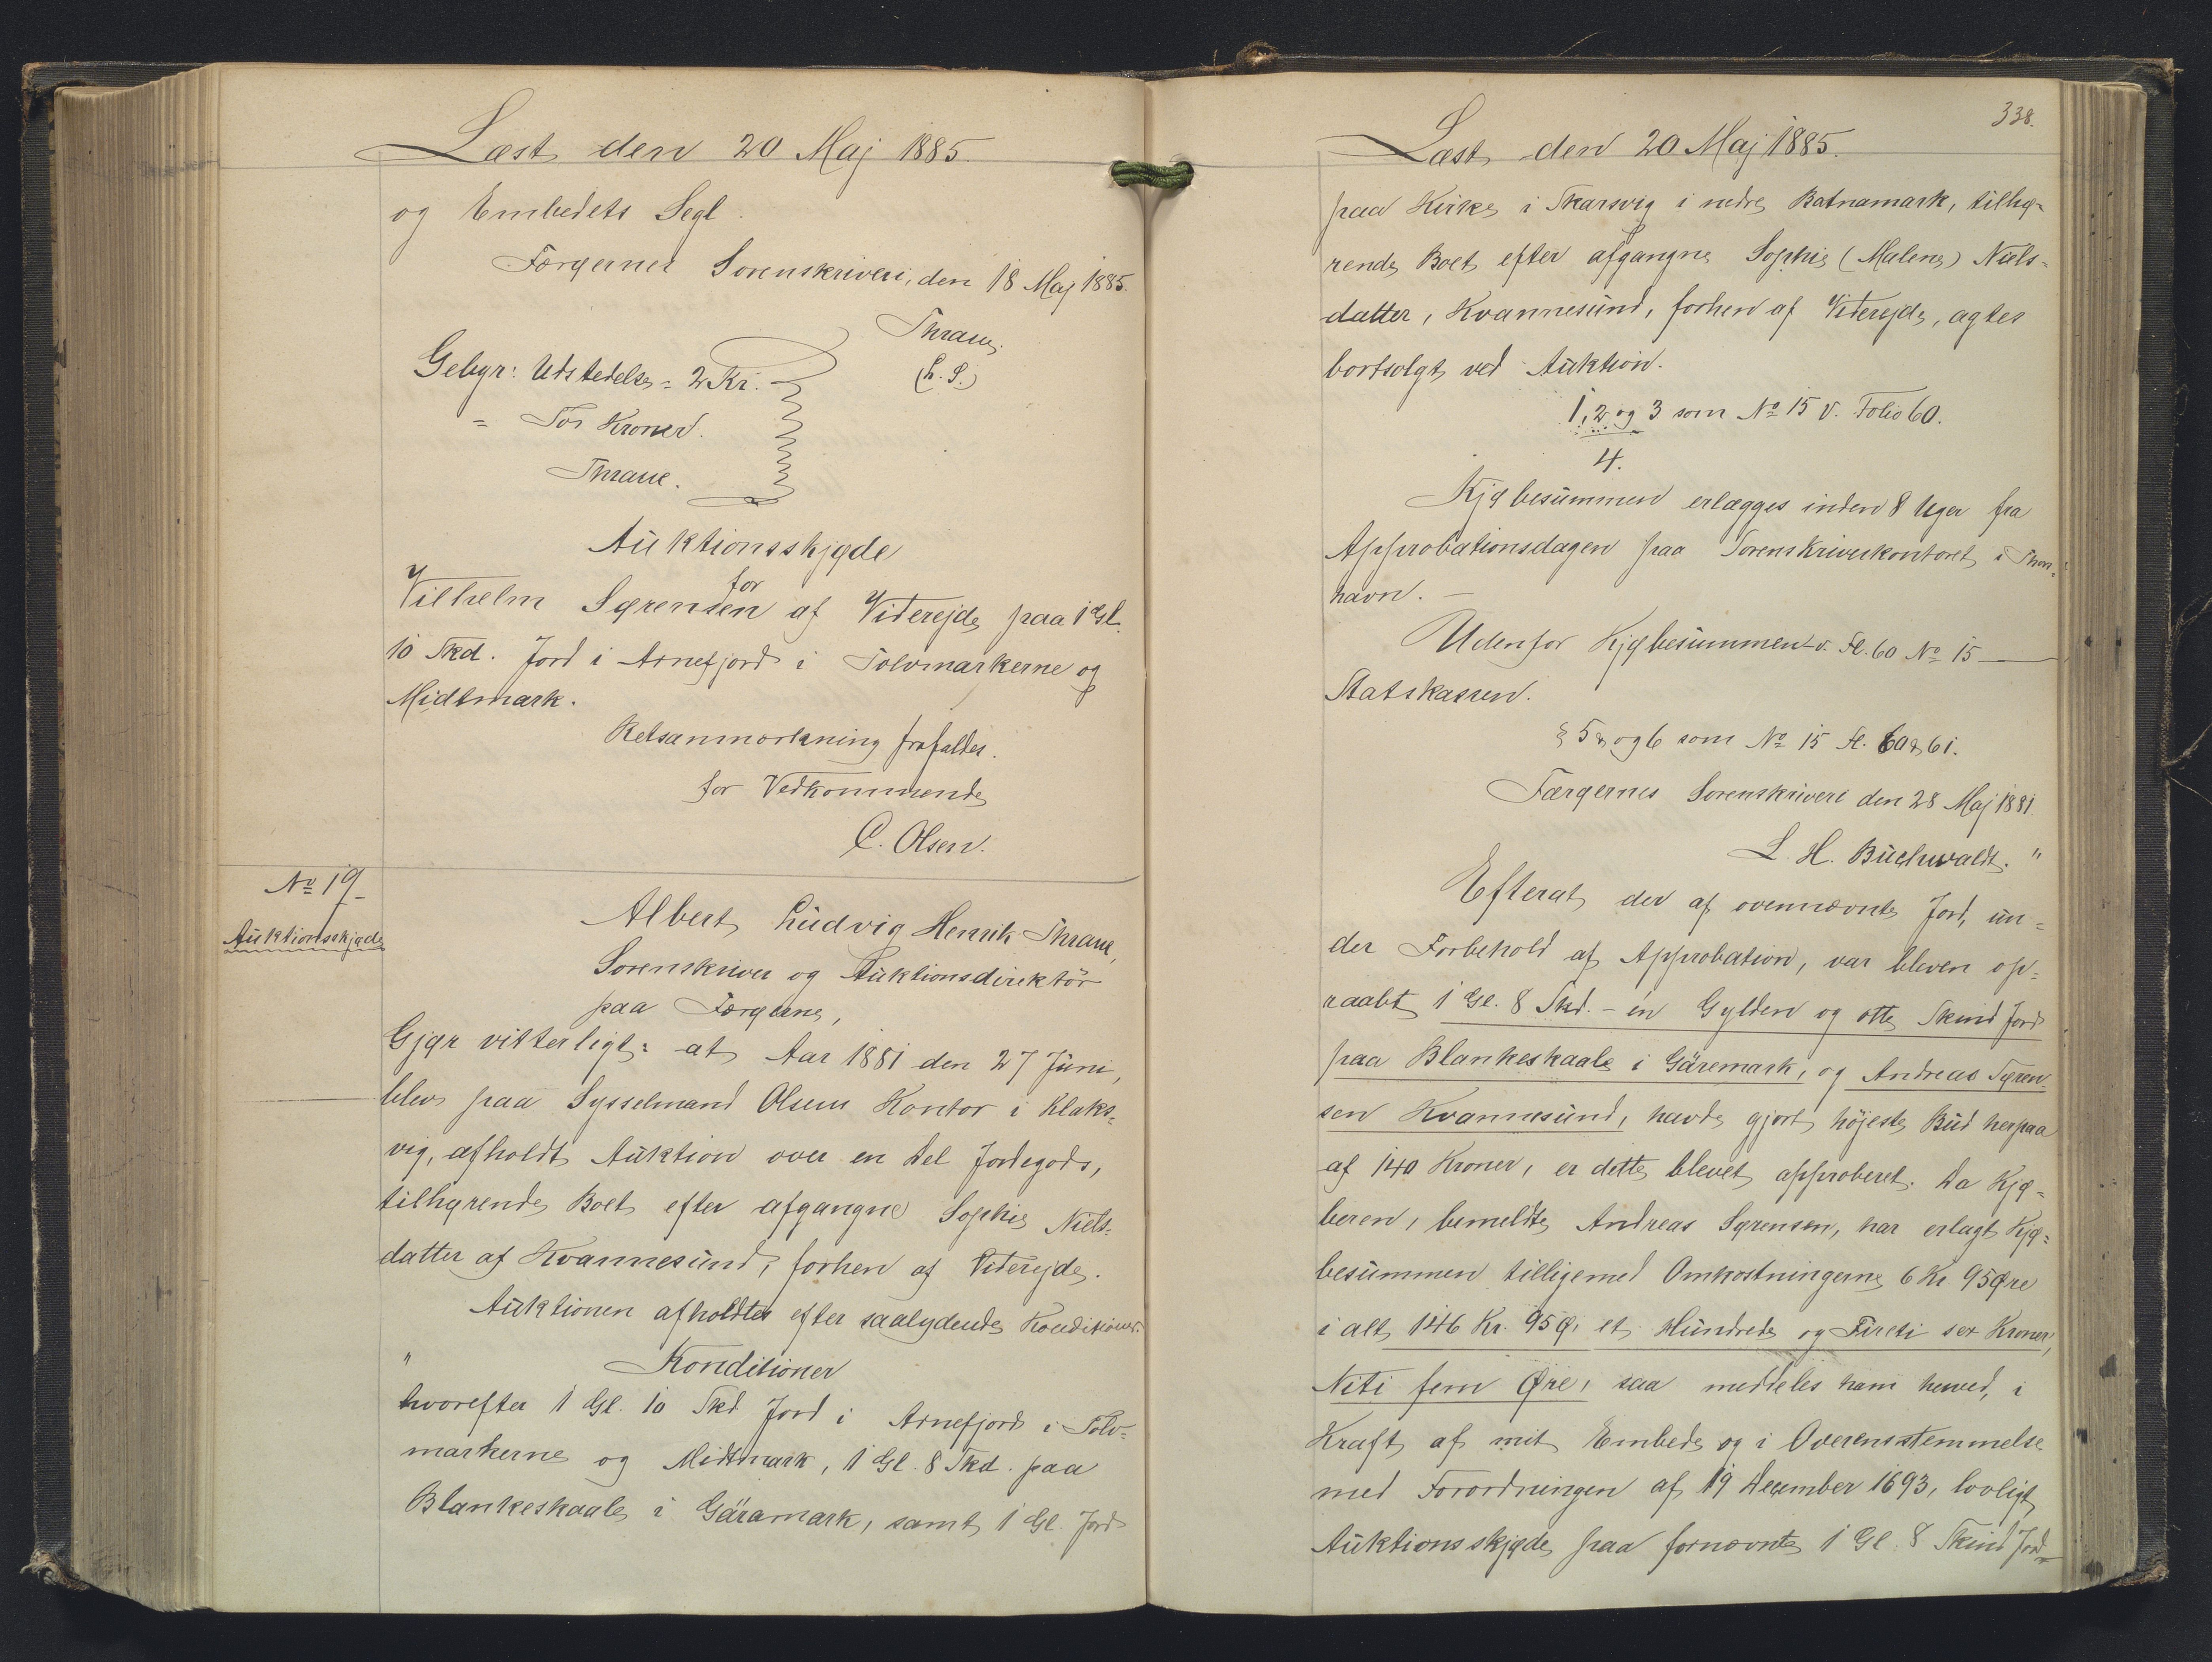 Læst den 20 Maj 1885.
og Embedets Segl.
Færøernes Sorenskriveri, den 18 Maj 1885.
Thrane.
(L. S.)
Gebyr: Udstedelse = 2 Kr. -
= To Kroner.
Thrane.
Auktionsskjøde
for
Vilhelm Sørensen af Viderejde paa 1 Gl.
10 Skd. Jord i Arnefjord i Tolvmarkerne og
Midtmark.
Retsanmærkning frafaldes.
for Vedkommende
C. Olsen.
No 19
Auktionsskjøde
Albert Ludvig Henrik Thrane,
Sorenskriver og Auktionsdirektör
paa Færøerne,
Gjør vitterligt: at Aar 1881 den 27 Juni,
blev paa Sysselmand Olsens Kontor i Klaks-
vig, afholdt Auktion over en Del Jordegods,
tilhørende Boet efter afgangne Sophie Niels-
datter af Kvannesund, forhen af Viderejde.
Auktionen afholdtes efter saalydende Konditioner:
" Konditioner
hvorefter 1 Gl. 10 Skd Jord i Arnefjord i Tolv-
markerne og Midtmark, 1 Gl. 8 Skd. paa
Blankeskaale i Gäramark, samt 1 Gl. Jord
338.
Læst den 20 Maj 1885.
paa Kirke i Skarsvig i nedre Batnamark, tilhø-
rende Boet efter afgangne Sophie (Malene) Niels-
datter, Kvannesund, forhen af Viderejde, agtes
bortsolgt ved Auktion.
1, 2 og 3 som No 15 v. Folio 60.
4.
Kjøbesummen erlægges inden 8 Uger fra
Approbationsdagen paa Sorenskriverkontoret i Thors-
havn. -
Udenfor Kjøbesummen - v. Fl. 60 No 15 -
Statskassen.
§ 5 og 6 som No 15 Fl. 60 & 61.
Færøernes Sorenskriveri den 28 Maj 1881
L. H. Buchwaldt. "
Efterat der af ovennævnte Jord, un-
der Forbehold af Approbation, var bleven op-
raabt 1 Gl. 8 Skd. - en Gylden og otte Skind Jord
paa Blankeskaale i Gäremark, og Andreas Søren-
sen Kvannesund, havde gjort höjeste Bud herpaa
af 140 Kroner, er dette blevet approberet. Da Kjø-
beren, bemeldte Andreas Sørensen, har erlagt Kjø-
besummen tilligemed Omkostningerne 6 Kr 95 Øre
i alt 146 Kr. 95 Ø, et Hundrede og Fireti sex Kroner,
Niti fem Øre, saa meddeles ham herved, i
Kraft af mit Embede og i Overensstemmelse
med Forordningen af 19 December 1693, lovligt
Auktionsskjøde paa fornævnte 1 Gl. 8 Skind Jord